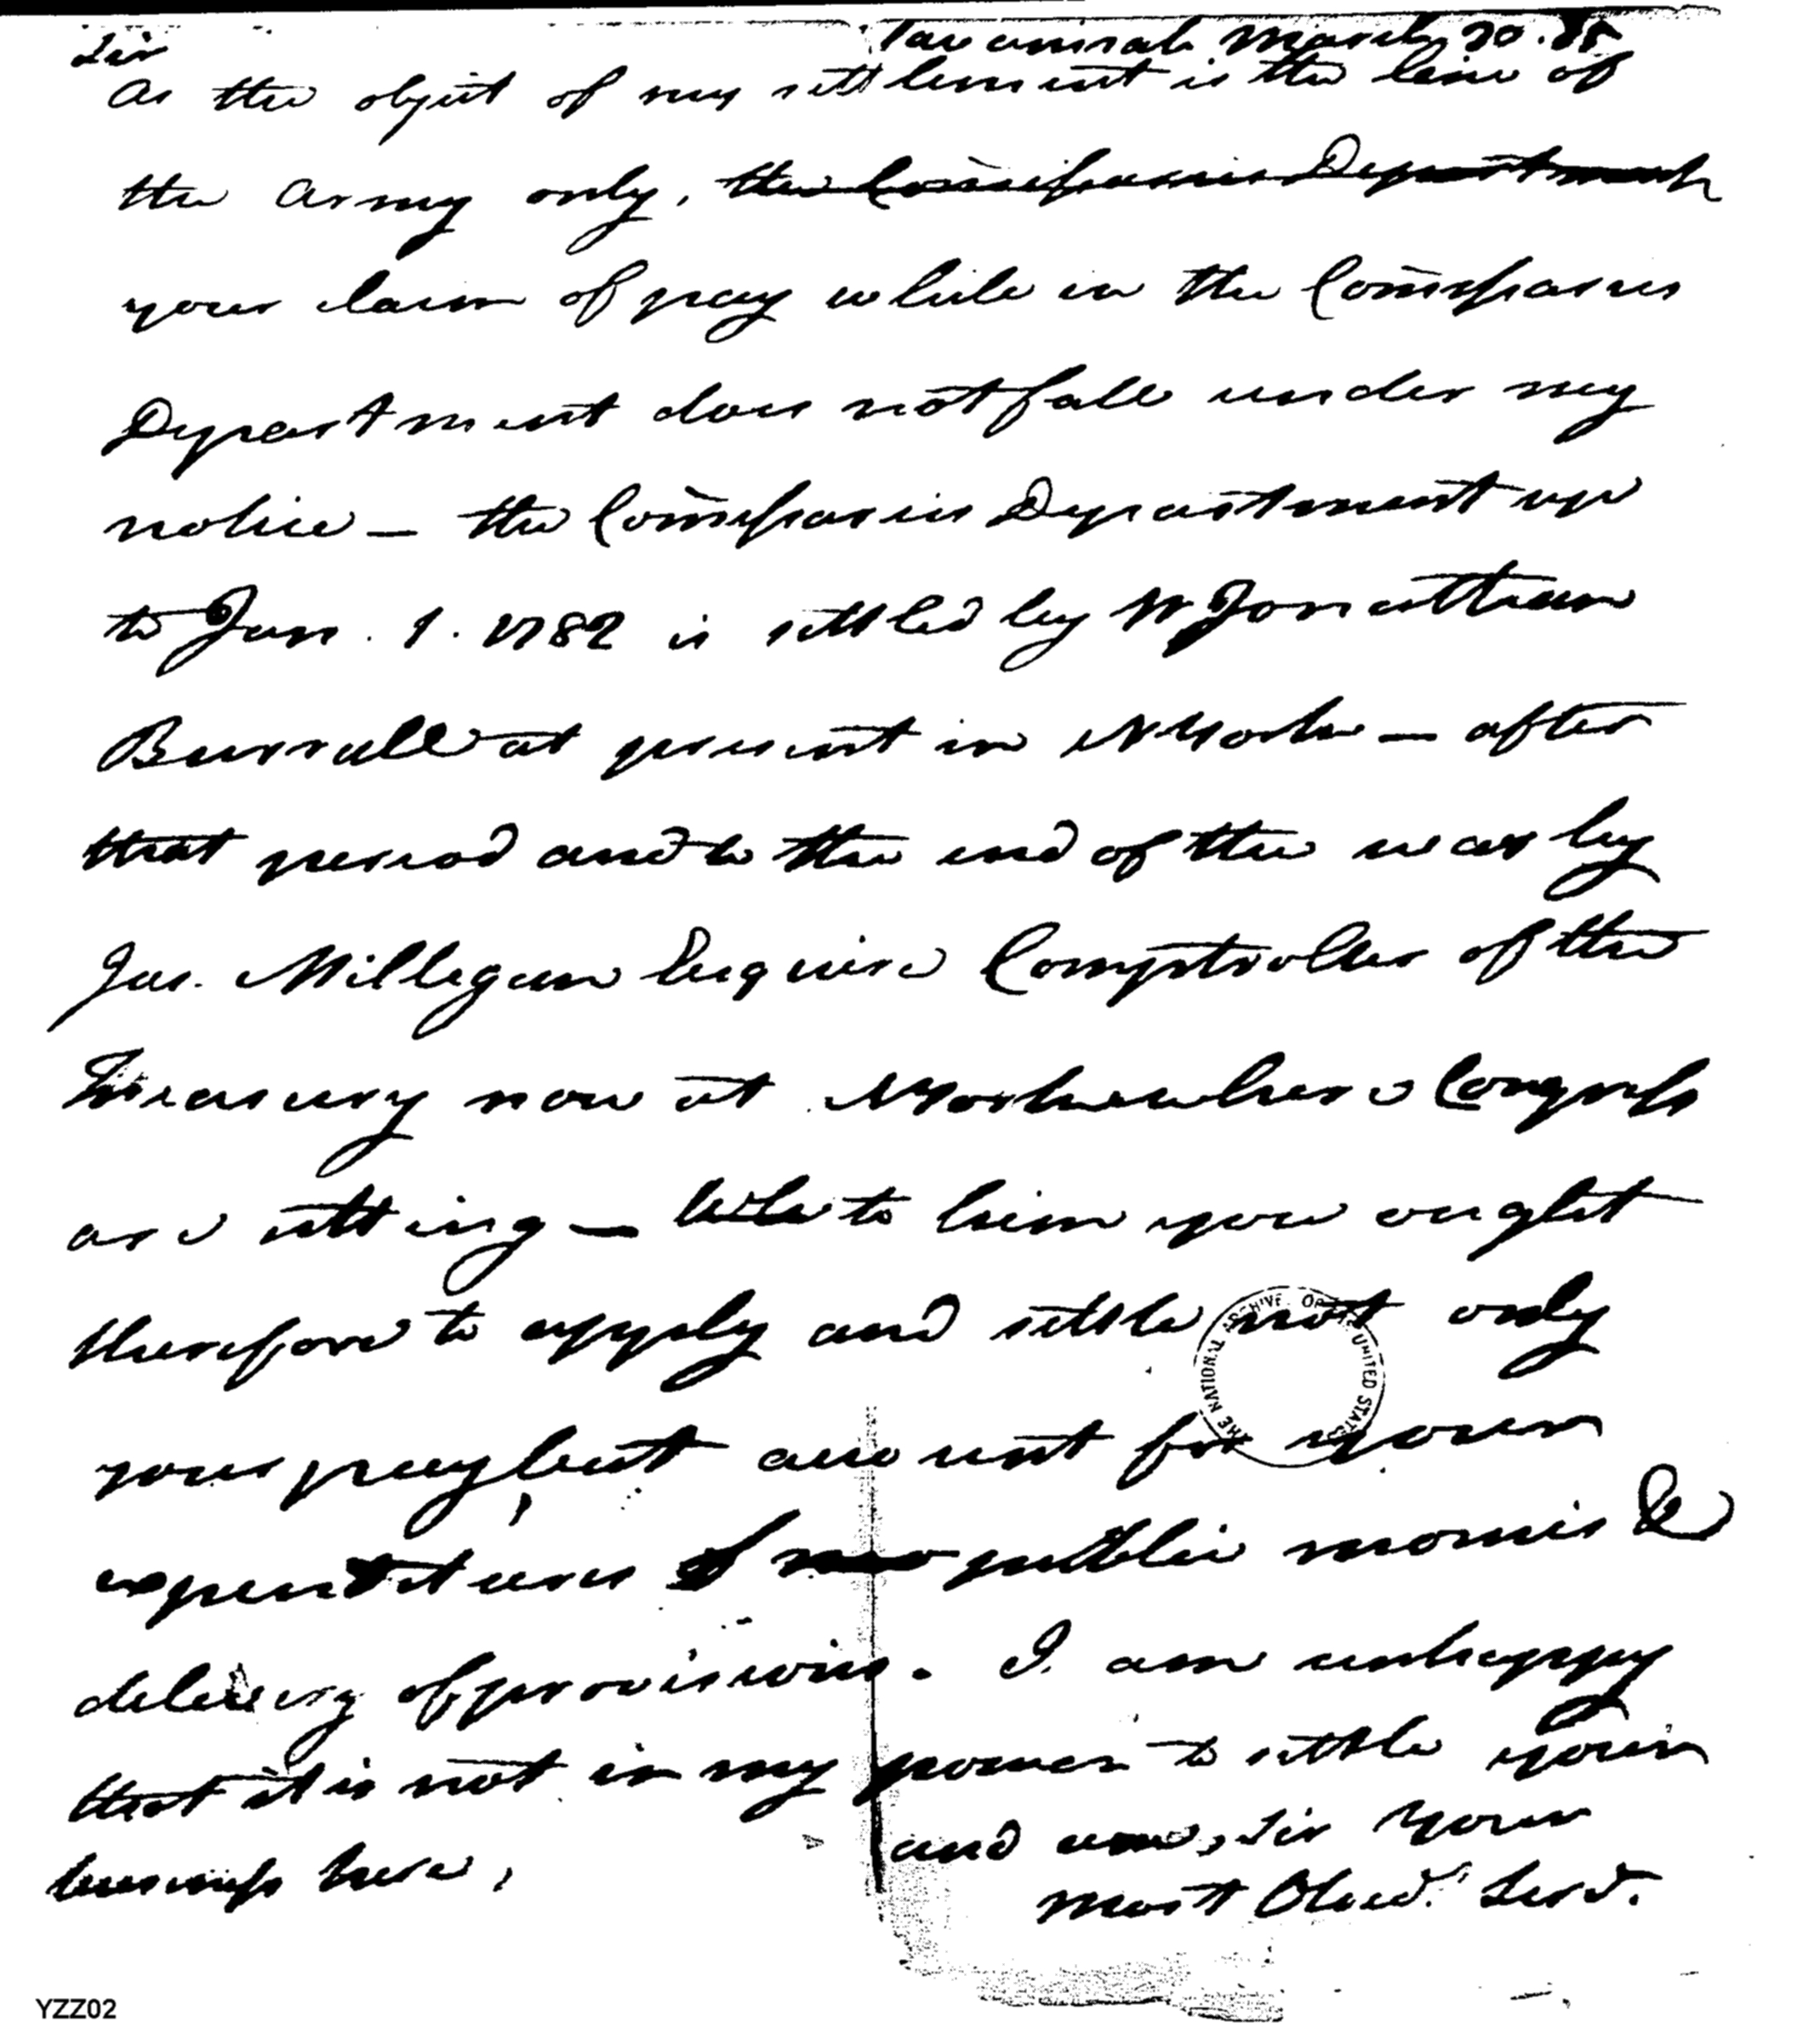 Sir Savannah March 30. 85
As the object of my settlement is the line of
the Army only, the Comissaries Department
your claim of pay while in the Comissaries
Department does not fall under my
notice — the Comissaries Department up
to Jan. 1. 1782 is settled by Mr Jonathan
Burrall at present in NYork — after
that period and to the end of the war by
Jas. Millegan Esquire Comptroller of the
Treasury now at NYork where Congress
are sitting — to him you ought
therefore to apply and settle not only
your pay, but account for your
expenditures of public monies &
delivery of provisions. I am unhappy
that it is not in my power to settle your
business here, and am, Sir Your
most Obed. Serv.
THE NATIONAL ARCHIVES OF THE UNITED STATES
YZZ02